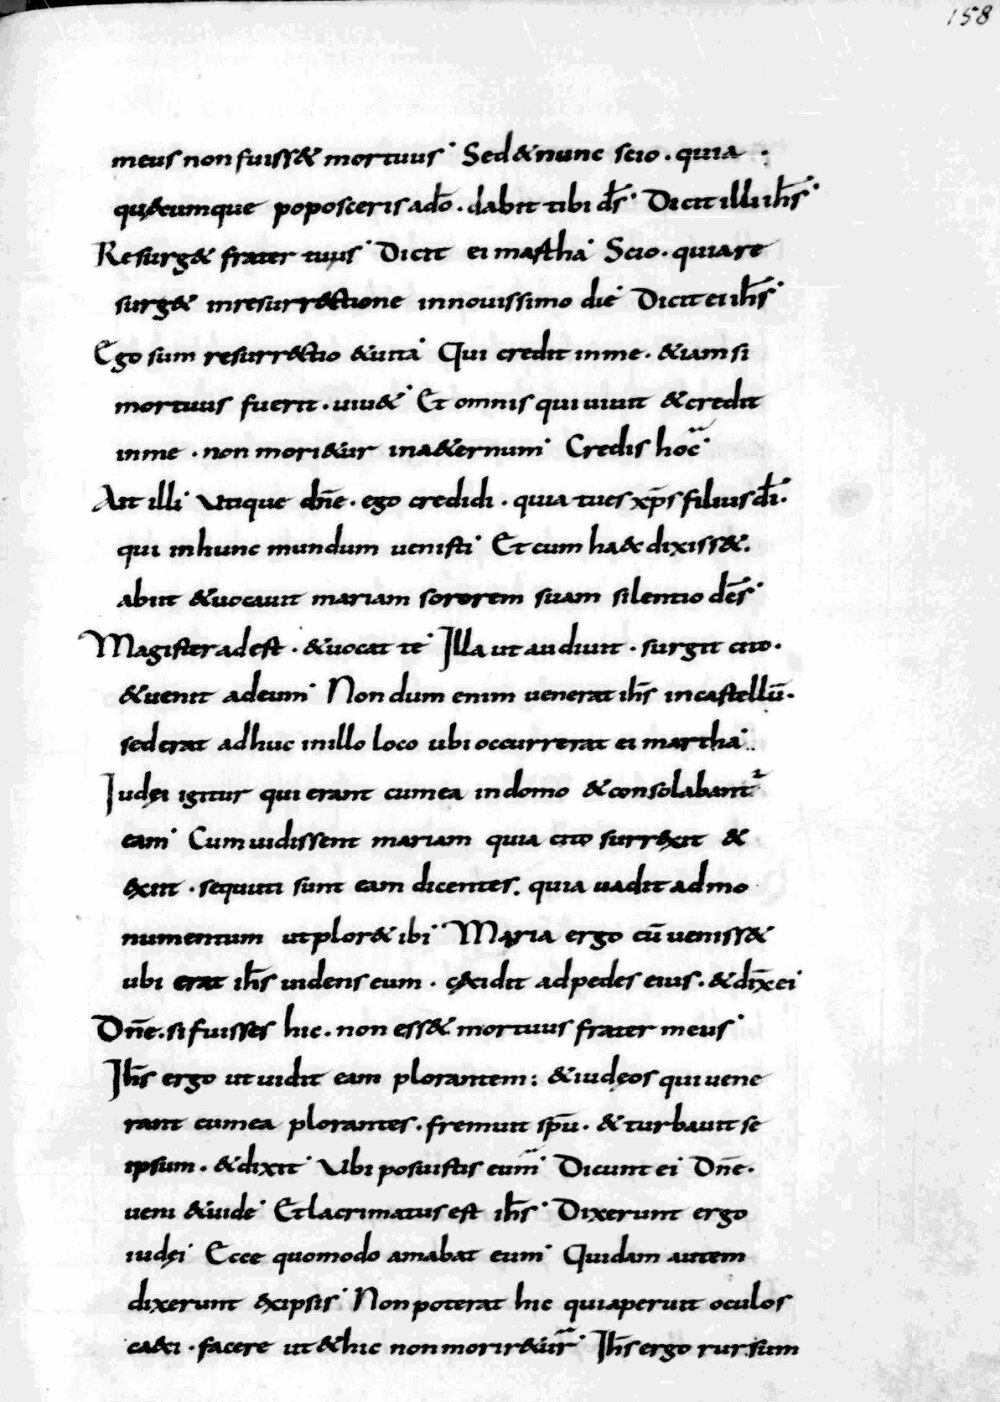 158
meus non fuiss& mortuus· Sed & nunc scio · quia ·
quęcumque poposceris a dō · dabit tibi ds̄· Dicit illi ihs̄·
Resurg& frater tuus· Dicit ei martha· Scio · quia re
surg& in resurrectione in nouissimo die· Dicit ei ihs̄·
Ego sum resurrectio & uita· Qui credit in me · &iam si
mortuus fuerit · uiu&· Et omnis qui uiuit & credit
in me · non mori&ur in a&ernum· Credis hoc·
Ait illi· Utique dn̄e · ego credidi · quia tu es xp̄s filius dī·
qui in hunc mundum uenisti· Et cum haec dixiss&·
abiit & uocauit mariam sororem suam silentio dcēs·
Magister adest · & uocat te· Illa ut audiuit · surgit cito·
& uenit ad eum· Non dum enim uenerat ihs̄ in castellū·
sed erat adhuc in illo loco ubi occurrerat ei martha·
Iudęi igitur qui erant cum ea in domo & consolabant᷑
eam· Cum uidissent mariam quia cito surrexit &
exiit · sequuti sunt eam dicentes· quia uadit ad mo
numentum ut plor& ibi· Maria ergo cū ueniss&
ubi erat ihs̄ uidens eum · cęcidit ad pedes eius · & dix̄ ei
Dn̄e · si fuisses hic · non ess& mortuus frater meus·
Ihs̄ ergo ut uidit eam plorantem: & iudęos qui uene
rant cum ea plorantes · fremuit spū · & turbauit se
ipsum · & dixit· Ubi posuistis eum· Dicunt ei· Dn̄e·
ueni & uide· Et lacrimatus est ihs̄· Dixerunt ergo
iudęi· Ecce quomodo amabat eum· Quidam autem
dixerunt ex ipsis· Non poterat hic qui aperuit oculos
caeci · facere ut & hic non morir&ur· Ihs̄ ergo rursum